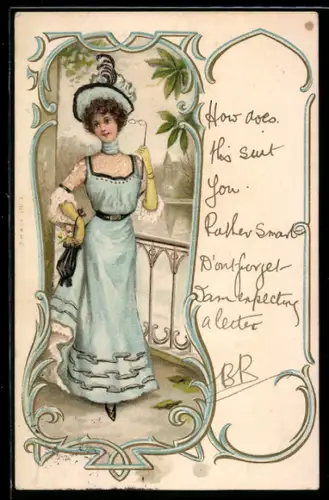 How does
this suit
you.
Rather Smart
D'ont forget
I am expecting
a letter
BR